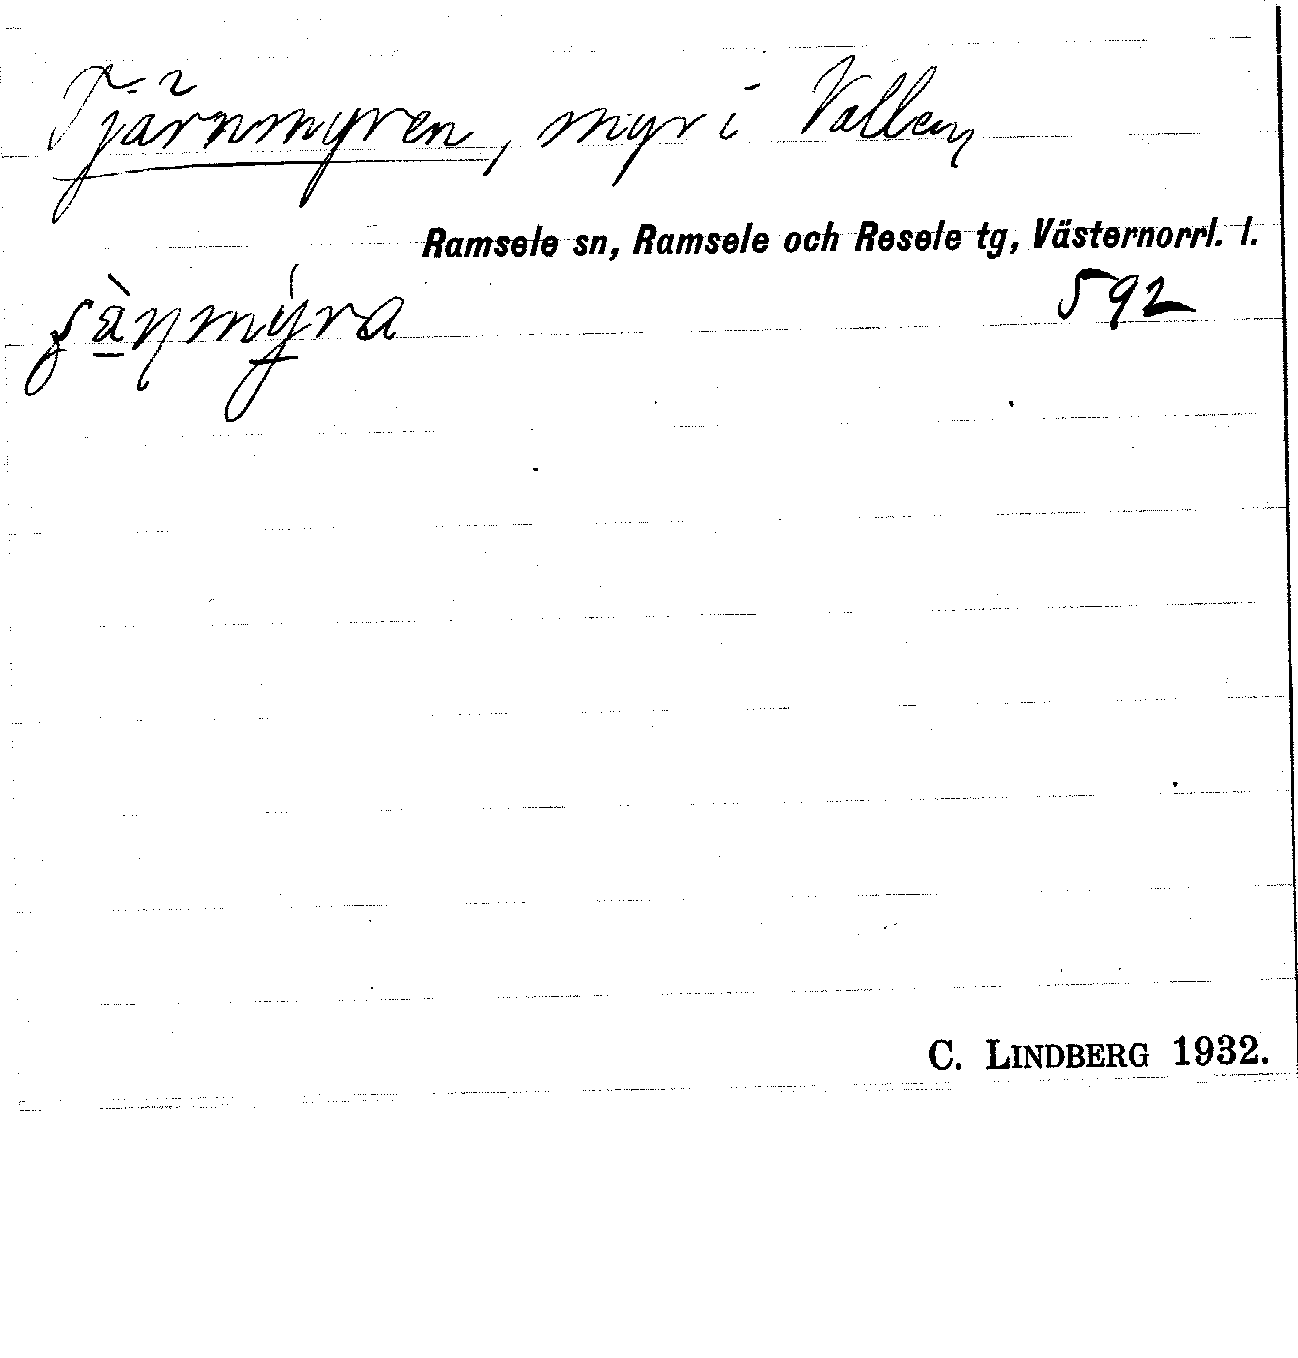 Tjärnmyren, myr i Vallen
Ramsele sn, Ramsele och Resele tg, Västernorrl. l.
592
C. LINDBERG 1932.